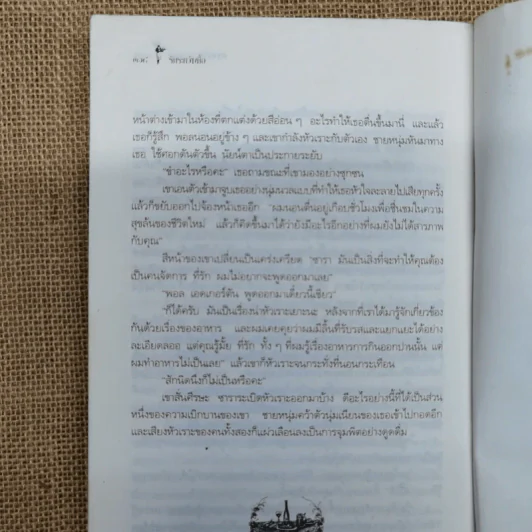 หน้าต่างเข้ามาในห้องที่ตกแต่งด้วยสีอ่อน ๆ อะไรทำให้เธอตื่นขึ้นมานี่ และแล้ว
เธอก็รู้สึก พอลนอนอยู่ข้าง ๆ และเขากำลังหัวเราะกับตัวเอง ชายหนุ่มหันมาทาง
เธอ ใช้ศอกดันตัวขึ้น นัยน์ตาเป็นประกายระยับ
"ขำอะไรหรือคะ" เธอถามขณะที่เขามองอย่างซุกซน
เขาเอนตัวเข้ามาจูบเธออย่างนุ่มนวลแบบที่ทำให้เธอหัวใจละลายไปเสียทุกครั้ง
แล้วก็ขยับออกไปจ้องหน้าเธออีก "ผมนอนตื่นอยู่เกือบชั่วโมงเพื่อชื่นชมในความ
สุขล้นของชีวิตใหม่ แล้วก็คิดขึ้นมาได้ว่ายังมีอะไรอีกอย่างที่ผมยังไม่ได้สารภาพ
กับคุณ"
สีหน้าของเขาเปลี่ยนเป็นเคร่งเครียด "ซารา มันเป็นสิ่งที่จะทำให้คุณต้อง
เป็นคนจัดการ ที่รัก ผมไม่อยากจะพูดออกมาเลย"
"พอล เอคเกอร์ตัน พูดออกมาเดี๋ยวนี้เชียว"
"ก็ได้ครับ มันเป็นเรื่องน่าหัวเราะเยาะนะ หลังจากที่เราได้มารู้จักเกี่ยวข้อง
กันด้วยเรื่องของอาหาร และผมเคยคุยว่าผมมีลิ้นที่รับรสและแยกแยะได้อย่าง
ละเอียดลออ แต่คุณรู้มั้ย ที่รัก ทั้ง ๆ ที่ผมรู้เรื่องอาหารการกินออกปานนั้น แต่
ผมทำอาหารไม่เป็นเลย" แล้วเขาก็หัวเราะจนกระทั่งที่นอนกระเทือน
"สักนิดนึงก็ไม่เป็นหรือคะ"
เขาสั่นศีรษะ ซาราระเบิดหัวเราะออกมาบ้าง ดีอะไรอย่างนี้ที่ได้เป็นส่วน
หนึ่งของความเบิกบานของเขา ชายหนุ่มคว้าตัวนุ่มเนียนของเธอเข้าไปกอดอีก
และเสียงหัวเราะของคนทั้งสองก็แผ่วเลือนลงเป็นการจุมพิตอย่างดูดดื่ม